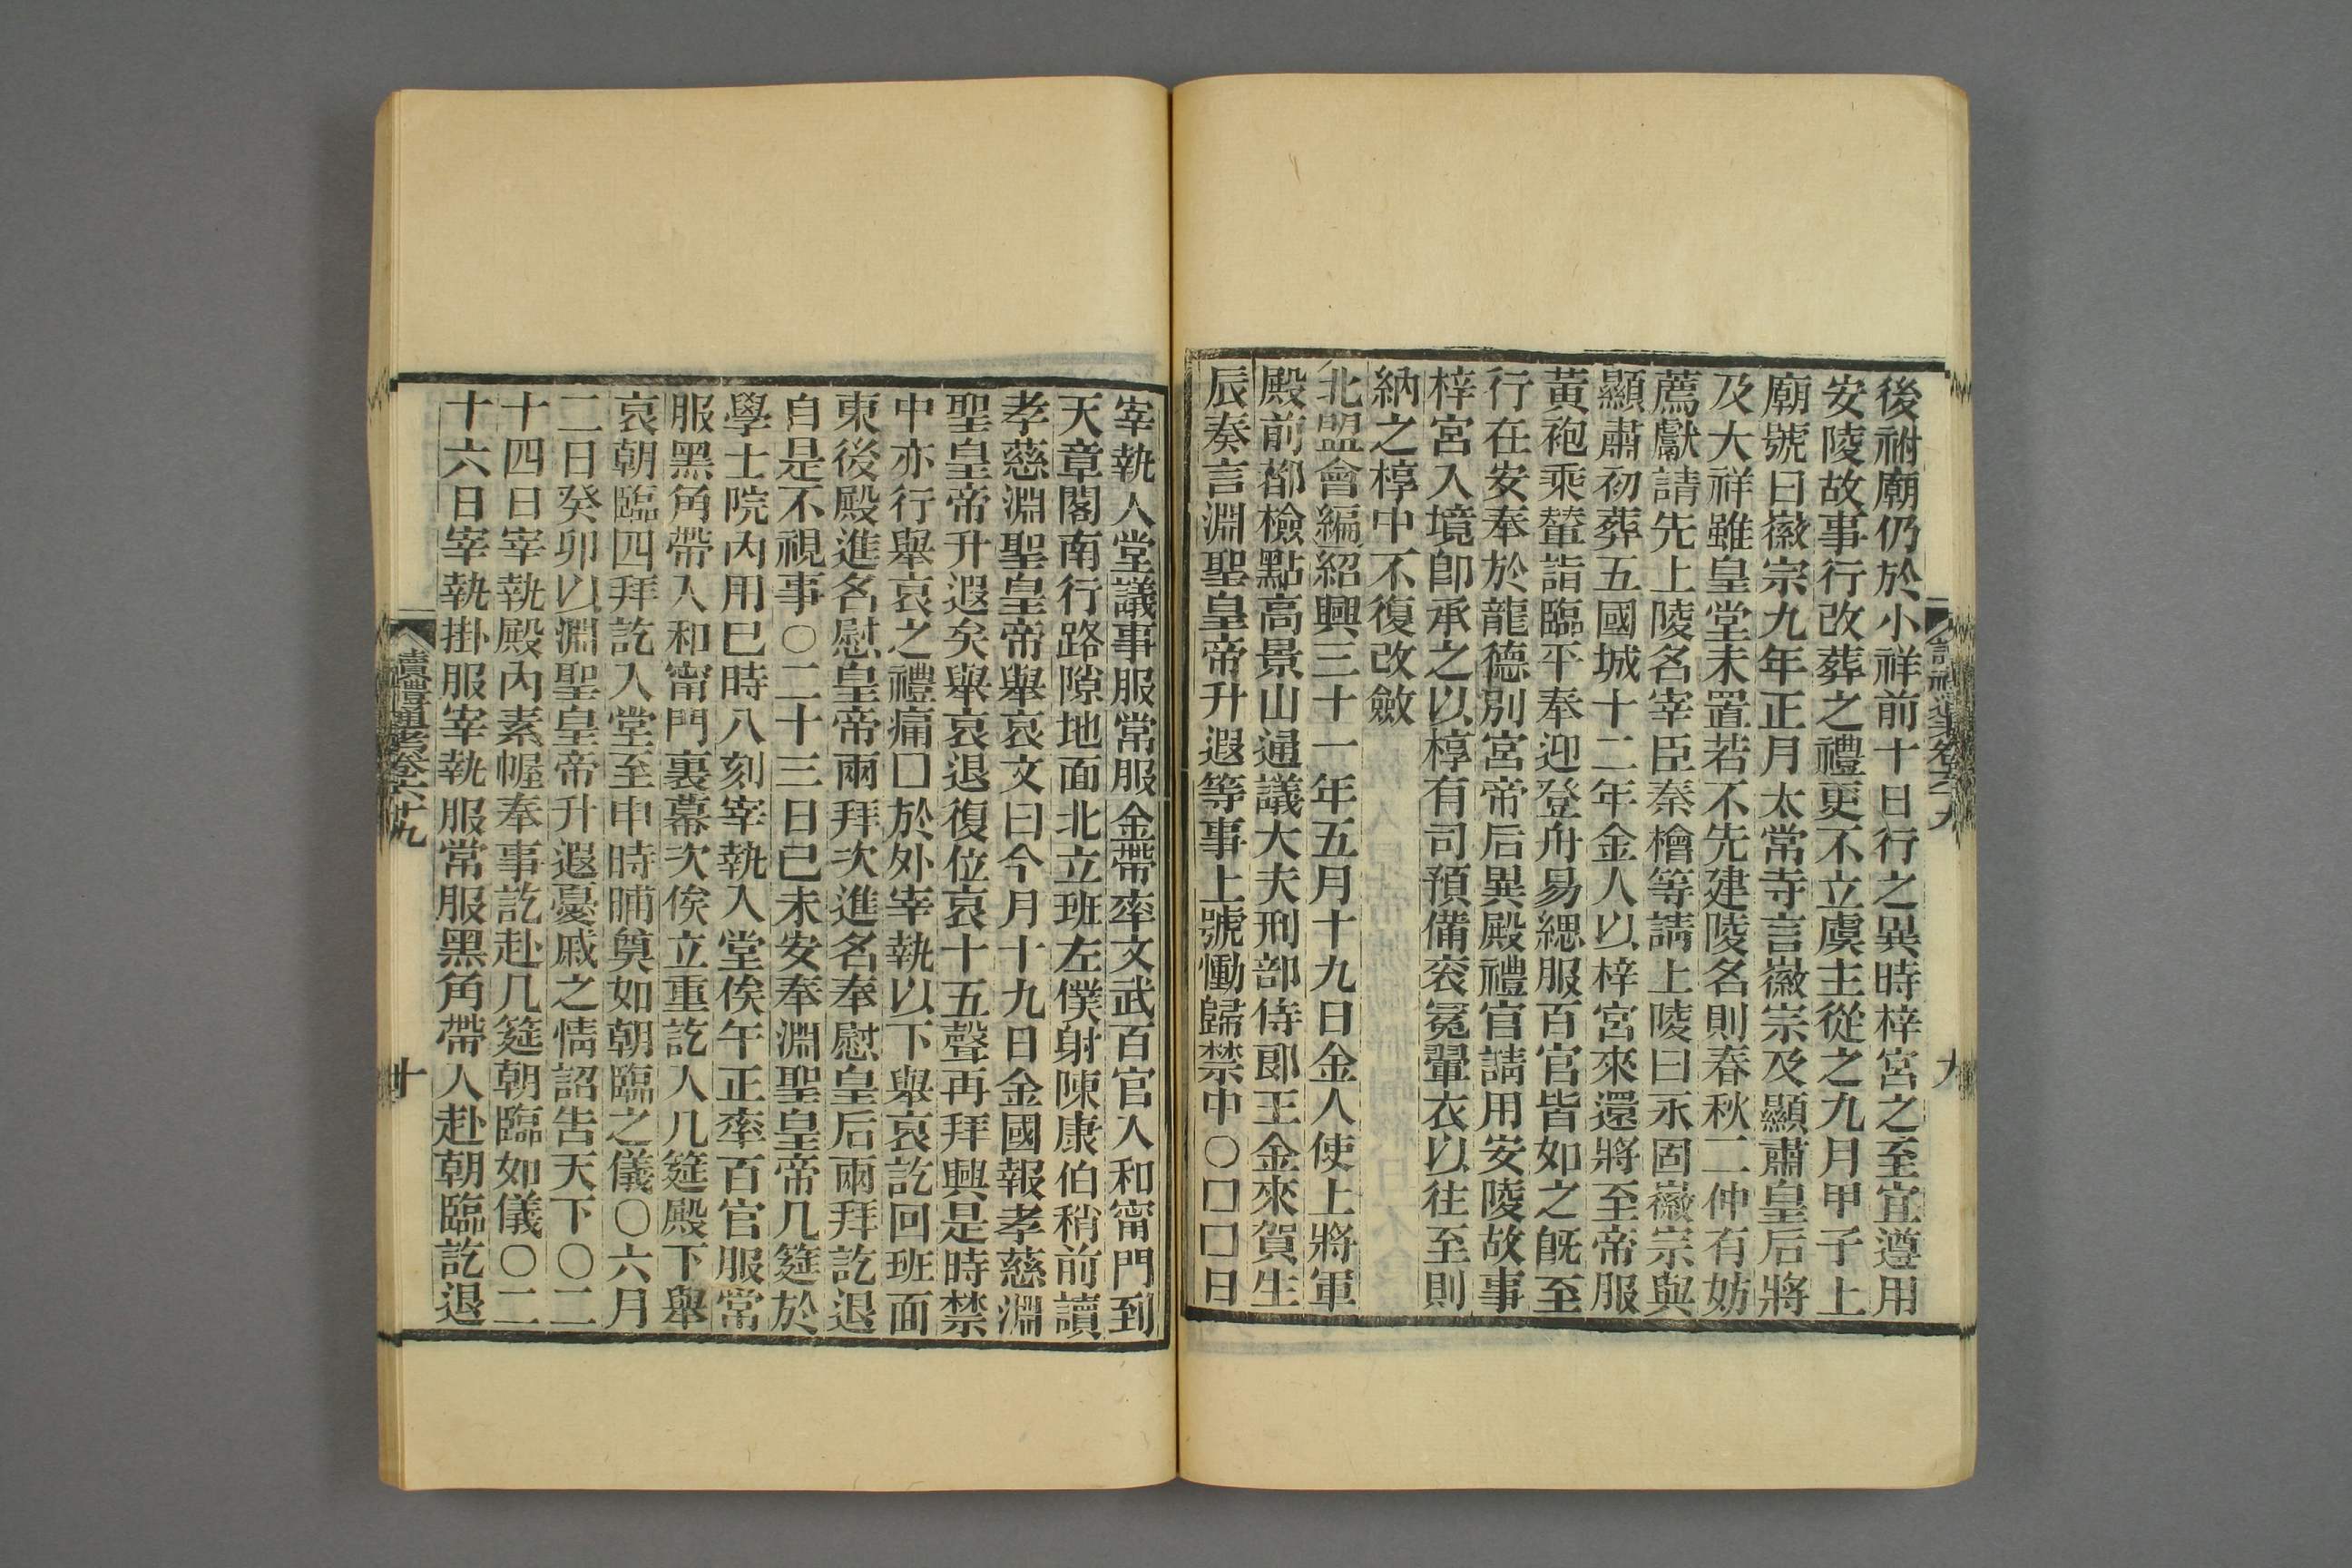 後祔廟仍於小祥前十日行之異時梓宮之至宜遵用
安陵故事行改葬之禮更不立虞主從之九月甲子上
廟號曰徽宗九年正月太常寺言徽宗及顯肅皇后將
及大祥雖皇堂未置若不先建陵名則春秋二仲有妨
薦獻請先上陵名宰臣秦檜等請上陵曰永固徽宗與
顯肅初葬五國城十二年金人以梓宮來還將至帝服
黃袍乘輦詣臨平奉迎登舟易緦服百官皆如之旣至
行在安奉於龍德別宮帝后異殿禮官請用安陵故事
梓宮入境卽承之以椁有司預備袞冕翬衣以往至則
納之椁中不復改斂
北盟會編紹興三十一年五月十九日金人使上將軍
殿前都檢點高景山通議大夫刑部侍郞王金來賀生
辰奏言淵聖皇帝升遐等事上號慟歸禁中○□□日
九
宰執入堂議事服常服金帶率文武百官入和甯門到
天章閣南行路隙地面北立班左僕射陳康伯稍前讀
孝慈淵聖皇帝舉哀文曰今月十九日金國報孝慈淵
聖皇帝升遐矣舉哀退復位哀十五聲再拜興是時禁
中亦行舉哀之禮痛□於外宰執以下舉哀訖回班面
東後殿進名慰皇帝兩拜次進名奉慰皇后兩拜訖退
自是不視事○二十三日己未安奉淵聖皇帝几筵於
學士院內用巳時八刻宰執入堂俟午正率百官服常
服黑角帶入和甯門裏幕次俟立重訖入几筵殿下舉
哀朝臨四拜訖入堂至申時晡奠如朝臨之儀○六月
二日癸卯以淵聖皇帝升遐憂戚之情詔告天下○二
十四日宰執殿內素幄奉事訖赴几筵朝臨如儀○二
十六日宰執掛服宰執服常服黑角帶入赴朝臨訖退
讀禮通考卷六十九
十